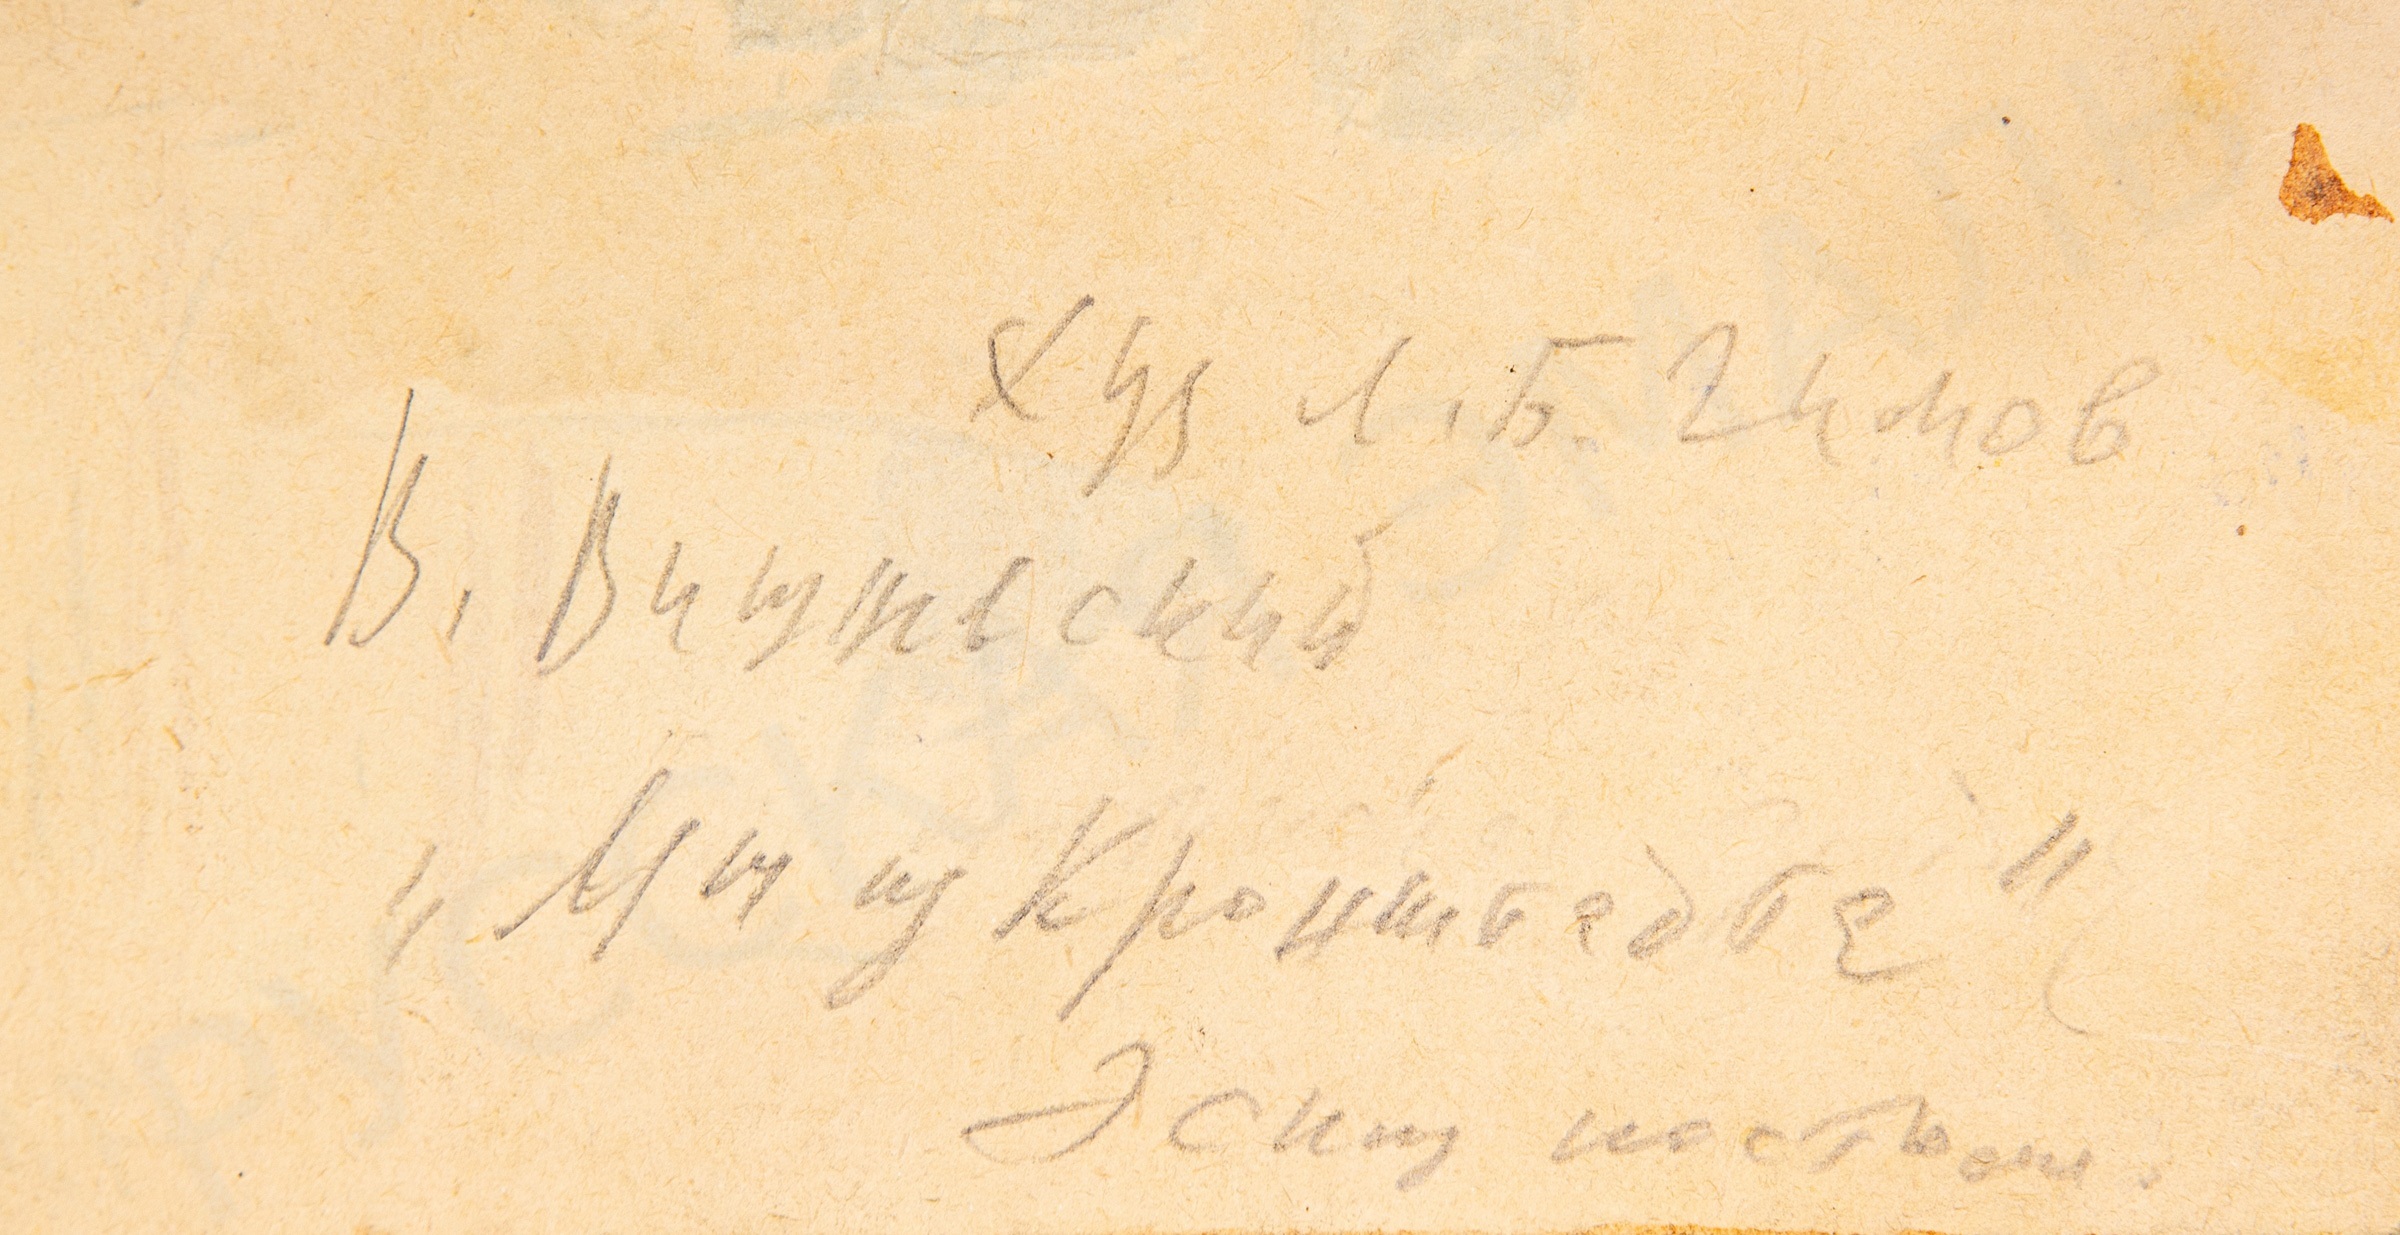 Худ Л.Б. Гимов
В. Вишневский
"Мы из Кронштадта"
Эскиз костюм.